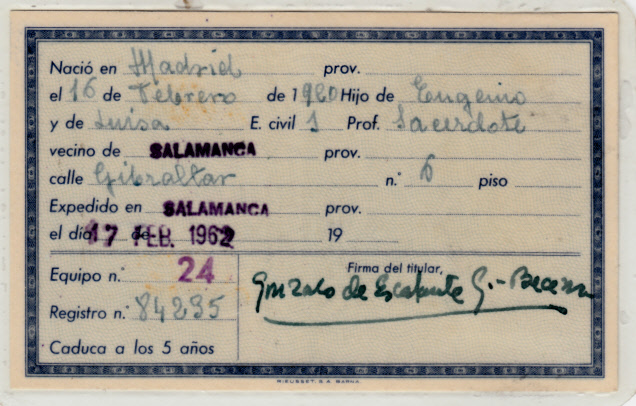 Nació en Madrid prov.
el 16 de Febrero de 1920 Hijo de Eugenio
y de Luisa E. civil S Prof. Sacerdote
vecino de SALAMANCA prov.
calle Gibraltar n.° 6 piso
Expedido en SALAMANCA prov.
el día 17 de FEB. 1962 19
Equipo n.° 24 Firma del titular,
Gonzalo de Escalante G.-Becerra
Registro n.° 84295
Caduca a los 5 años
RIEUSSET, S.A. BARNA.